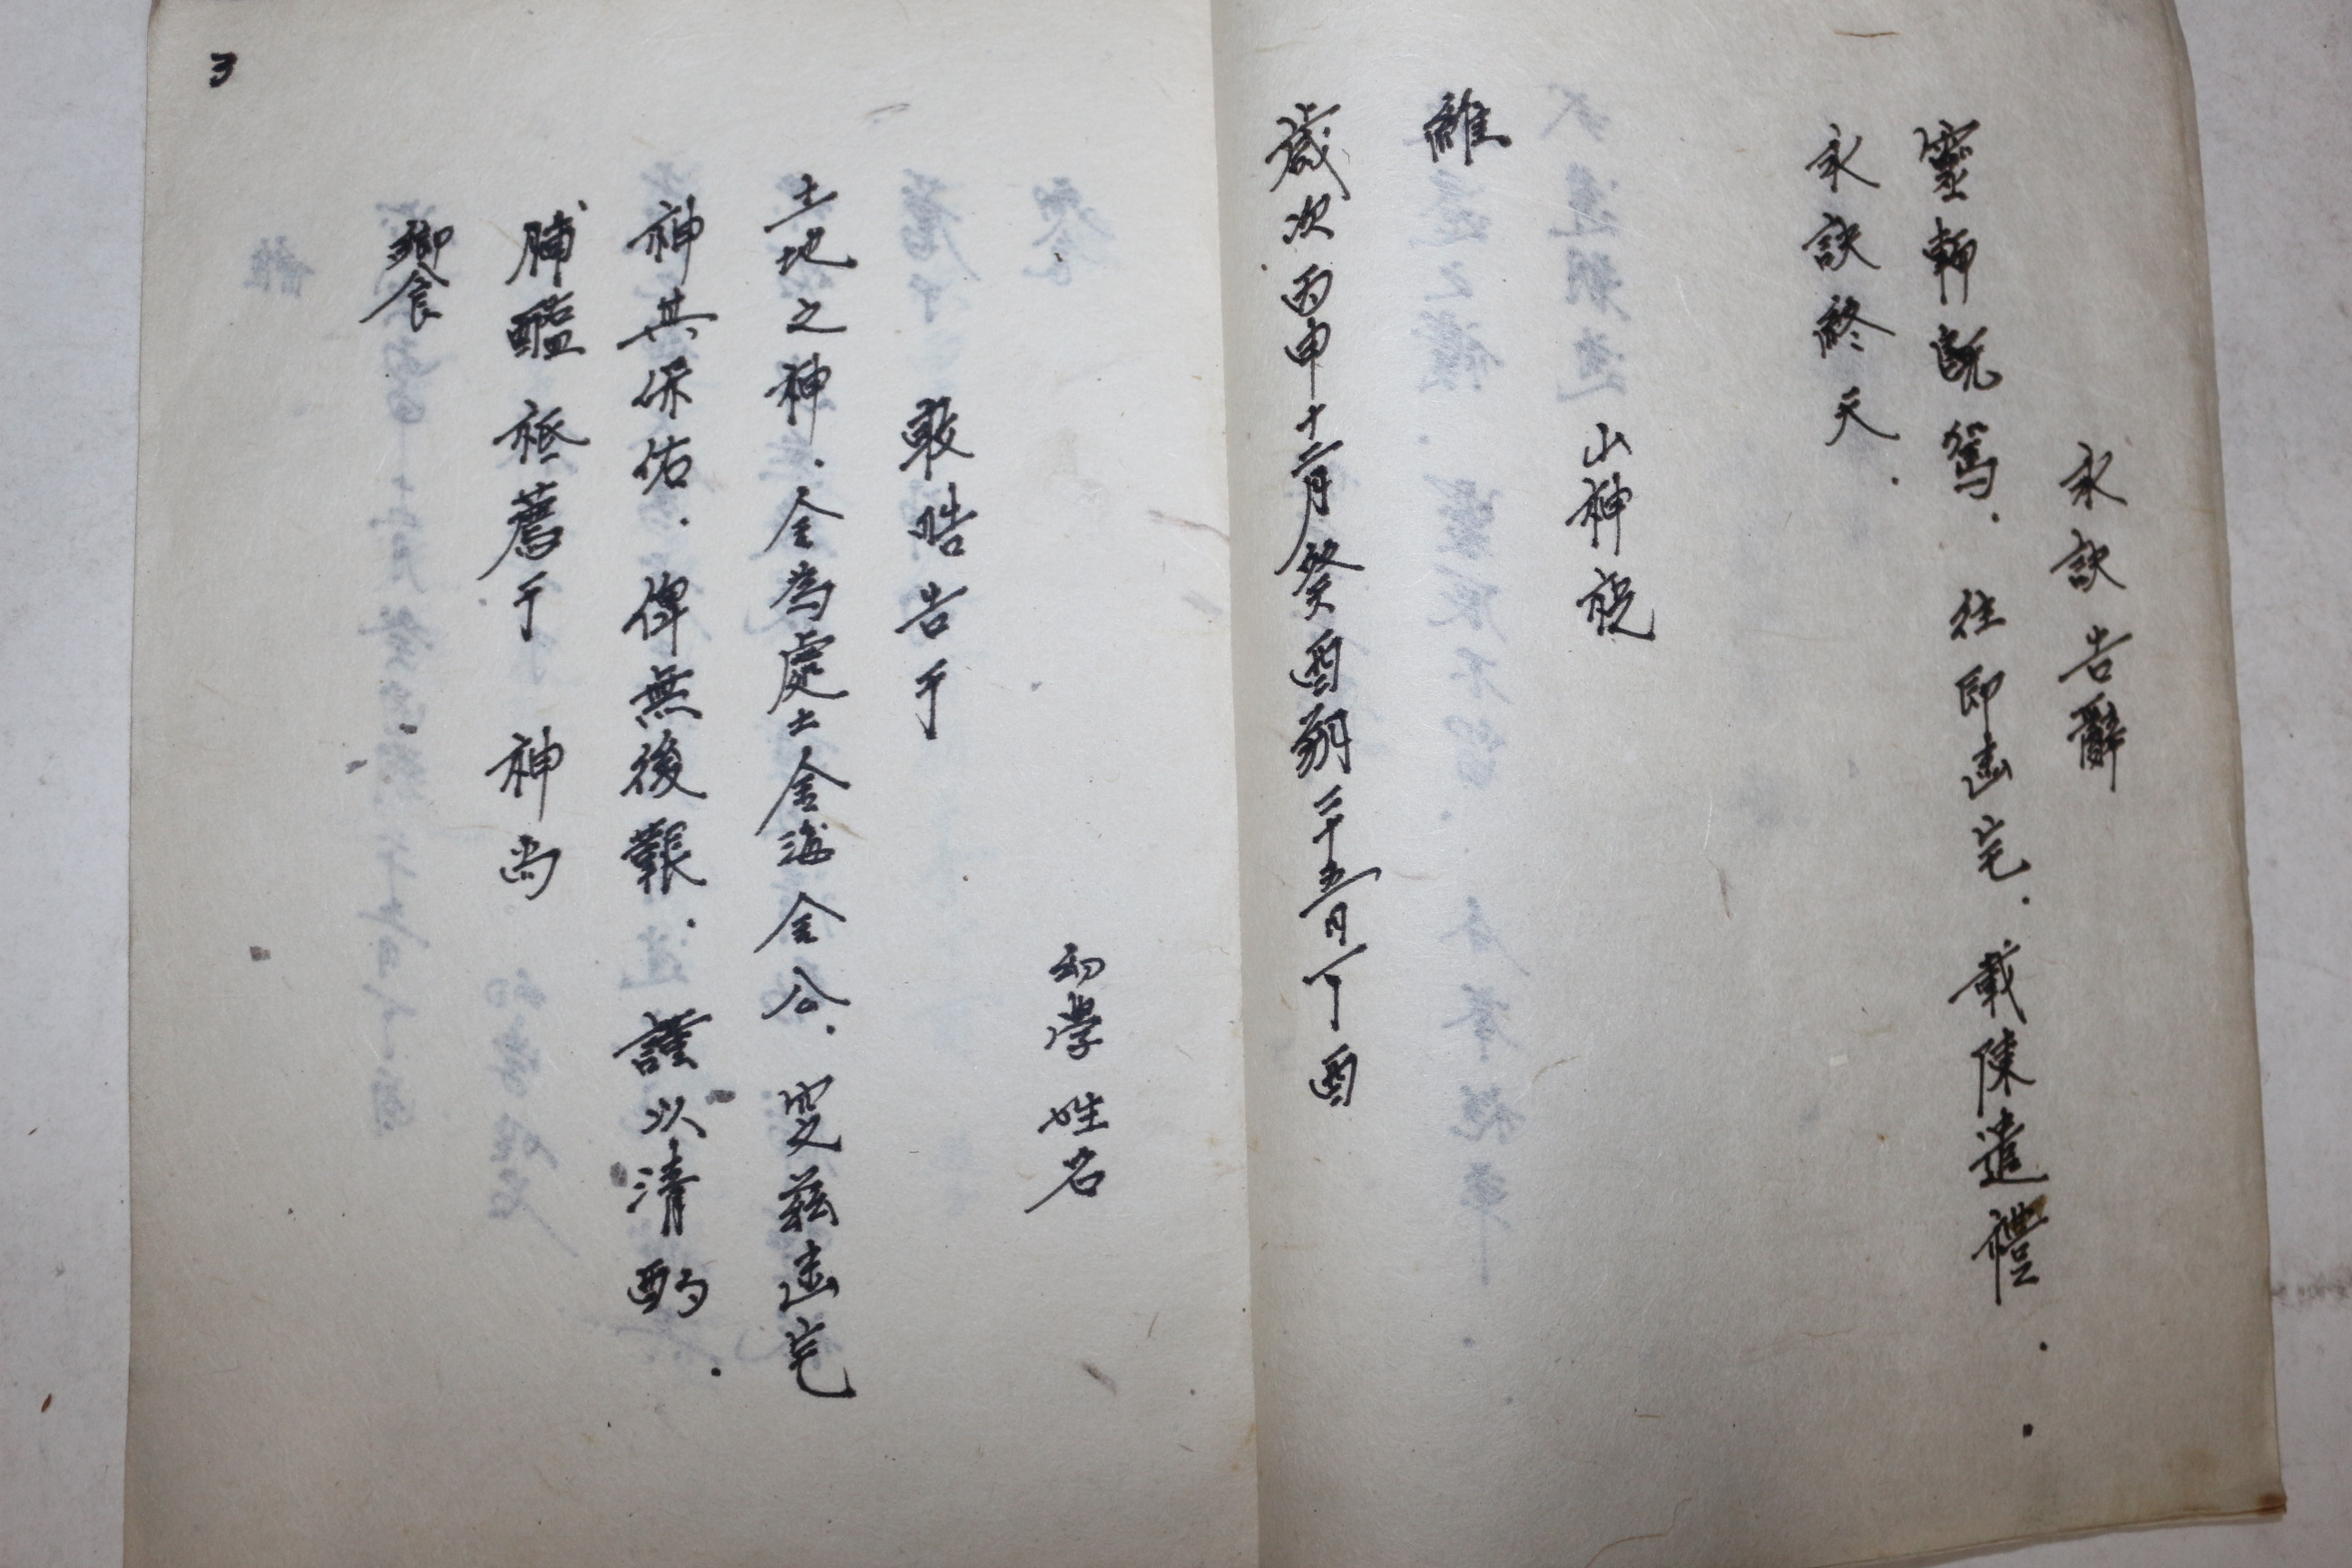 永訣告辭
靈輀既駕. 往即幽宅. 載陳遣禮..
永訣終天.
山神祝
維
歲次丙申十二月癸酉朔二十五日丁酉
幼學 姓名
敢昭告于
土地之神. 今為處士金海金公. 窆茲幽宅
神其保佑. 俾無後艱. 謹以清酌.
脯醢祗薦于 神尚
饗
3